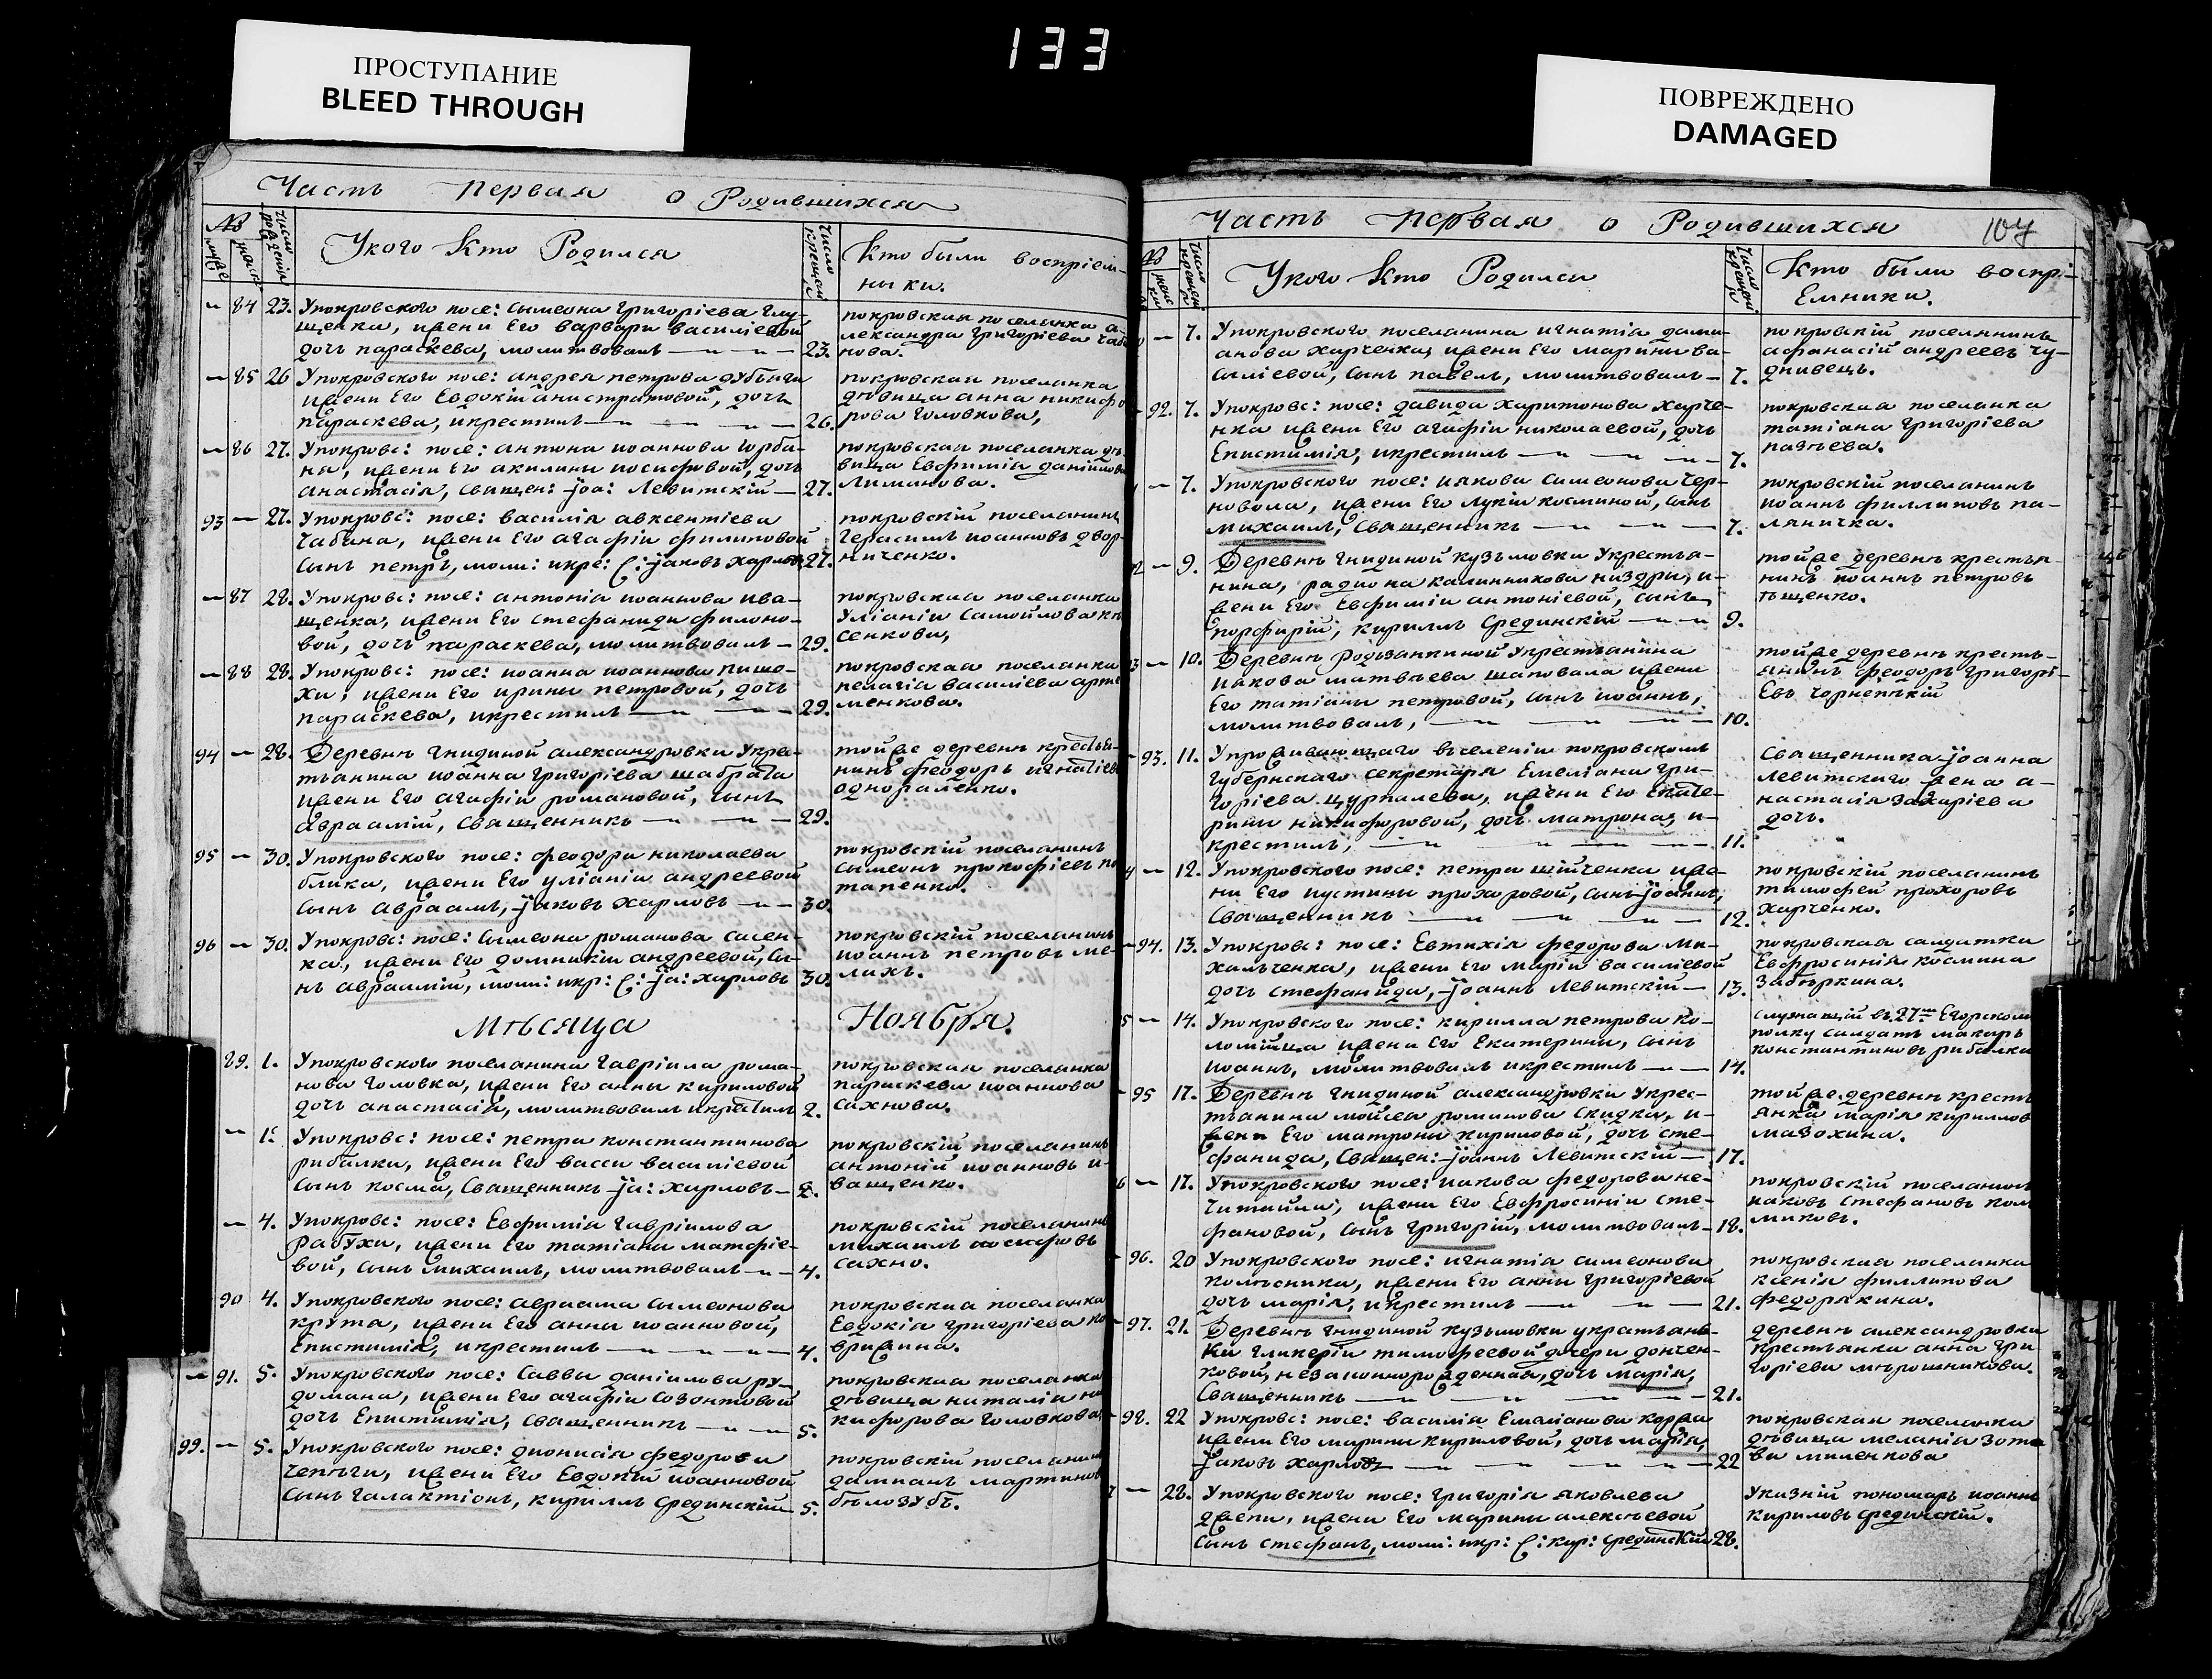 133
ПРОСТУПАНИЕ
BLEED THROUGH
ПОВРЕЖДЕНО
DAMAGED
Часть первая о Родившихся
№
Укого кто Родился
Кто были воспріем-
ники.
84 23. Упокровского посе: Сымеона григоріева глу-
щенка, ижени Его варвари василіевой
дочь параскева, молитвовалъ 23.
покровская поселянка а-
лександра григоріева чаба
нова.
85 26 Упокровского посе: андрея петрова дубинги
ижени Его Евдокіи анистратовой, дочь
параскева, икрестилъ 26.
покровская поселянка
дѣвица анна никифо
рова головкова,
86 27. Упокровс: посе: антона иоаннова горба-
ны, ижени Его акилины иосифовой, дочь
анастасія, Священ: Іоа: Левитскій 27.
покровская поселянка дѣ-
вица Евфимія даніилова
Лиманова.
93 27. Упокровс: посе: василія авксентіева
чабана, ижени Его агафіи филиповой
Сынъ петръ, моли: икре: С: Іаковъ харловъ 27.
покровскій поселянинъ
герасимъ иоанновъ двор-
ниченко.
87 28. Упокровс: посе: антонія иоаннова ива-
щенка, ижени Его стефаниди филоно-
вой, дочь параскева, молитвовалъ 29.
покровская поселянка
Уліанія Самойлова кн
сенкова,
88 28. Упокровс: посе: иоанна иоаннова
хи, ижени Его ирини петровой, дочь
параскева, икрестилъ 29.
покровская поселянка
пелагіа василіева арте
менкова.
94 28. Деревни гнидиной александровки Укре-
тьанина иоанна григоріева шабрата
ижени Его агафіи романовой, сынъ
авраамій, Священникъ 29.
тойже деревни крестья-
нинъ феодоръ игнатіев
однораленко.
95 30. Упокровского посе: феодора николаева
блика, ижени Его уліаніи андреевой
Сынъ авраамъ, Іаковъ харловъ 30.
покровскій поселянинъ
Сымеонъ прокофіевъ по
тапенко.
96 30. Упокровс: посе: Сымеона романова Сасен-
ка, ижени Его домникіи андреевой, Сы-
нъ авраамій, моли: икр: С: Іа: харловъ 30.
покровскій поселянинъ
иоаннъ петровъ ме-
лихъ.
Мѣсяца Ноября.
89. 1. Упокровского поселянина гавріила рома-
нова головка, ижени Его анны кириловой
дочь анастасія, молитвовалъ икрестилъ 2.
покровская поселянка
параскева иоаннова
сахнова.
1. Упокровс: посе: петра константинова
рибалки, ижени Его васси василіевой
Сынъ косма, Священникъ Іа: харловъ 2.
покровскій поселянинъ
антоній иоанновъ и-
ващенко.
4. Упокровс: посе: Евфимія гавріилова
рабухи, ижени Его татіани матфіе-
вой, Сынъ михаилъ, молитвовалъ 4.
покровскій поселянинъ
михаилъ иосифовъ
сахно.
90 4. Упокровского посе: авраама Сымеонова
крута, ижени Его анны иоанновой,
Епистимія, икрестилъ 4.
покровская поселянка
Евдокія григоріева ко
врижина.
91. 5. Упокровского посе: Саввы даніилова ру-
домана, ижени Его агафіи Созонтовой
дочь Епистимія, Священникъ 5.
покровская поселянка
дѣвица наталія ни
кифорова головкова,
99. 5. Упокровского посе: дионисія федорова
чепѣги, ижени Его Евдокіи иоанновой
Сынъ галактіонъ, кириллъ Срединскій 5.
покровскій поселянинъ
даміанъ мартинов
бѣлозубъ.
Часть первая о Родившихся
№
Укого кто Родился
Кто были воспрі-
Емники.
7. Упокровского поселянина игнатіа дами-
анова харченка, ижени Его марини ва-
силіевой, Сынъ павелъ, молитвовалъ 7.
покровскій поселянинъ
афанасій андреевъ чу-
днивецъ.
92. 7. Упокровс: посе: давида харитонова харче-
нка ижени Его агафіи николаевой, дочь
Епистимія, икрестилъ 7.
покровская поселянка
татіана григоріева
7. Упокровского посе: иакова Симеонова чер-
новола, ижени Его лукіи косминой, Сынъ
михаилъ, Священникъ 7.
покровскій поселянинъ
иоаннъ филлиповъ па-
ляничка.
9. Деревни гнидиной кузьмовки Укрестья-
нина, радиона калинникова низдри, и-
жени Его Евфиміи антоніевой, Сынъ
порфирій, кириллъ Срединскій 9.
тойже деревни крестья-
нинъ иоаннъ петровъ
10. Деревни родзянкиной Укрестьанина
иакова матвѣева шаповала ижени
Его татіаны петровой, Сынъ иоаннъ,
молитвовалъ, 10.
тойже деревни кресть-
янинъ феодоръ григорі-
Евъ
93. 11. Упроживающаго вселеніи покровскомъ
губернскаго секретаря Емеліана гри-
горіева цурпалева, ижени Его Екате-
рини никифоровой, дочь матрона, и-
крестилъ, 11.
Священника Іоанна
Левитского жена а-
настасія захаріева
дочь.
12. Упокровского посе: петра шійченка иже-
ни Его иустини прохоровой, Сынъ Іоаннъ,
Священникъ 12.
покровскій поселянинъ
тимофей прохоровъ
харченко.
94. 13. Упокровс: посе: Евтихія федорова ми-
хальченка, ижени Его маріи василіевой
дочь стефанида, Іоаннъ Левитскій 13.
покровская салдатка
Евфросинія космина
Забѣркина.
14. Упокровского посе: кирилла петрова ко-
ломійца ижени Его Екатерины, Сынъ
иоаннъ, молитвовалъ икрестилъ 14.
служащій въ 27мъ Егорскомъ
полку салдатъ макаръ
константиновъ рибалка
95 17. Деревни гнидиной александровки Укрес-
тьанина мойсеа романова Скидка, и-
жени Его матроны кириловой, дочь сте-
фанида, Священ: Іоаннъ Левитскій 17.
тойже деревни кресть
янка марія кириллов
мазохина.
17. Упокровского посе: иакова федорова не-
читайла, ижени Его Евфросиніи сте-
фановой, Сынъ григорій, молитвовалъ 18.
покровскій поселянинъ
иаковъ стефановъ
96. 20 Упокровского посе: игнатіа симеонова
колѣсника, ижени Его анны григоріевой
дочь марія, икрестилъ 21.
покровская поселянка
ксенія филлипова
федорякина.
97. 21. Деревни гнидиной кузьмовки укрстьян-
ки гликеріи тимофеевой дочери дончен-
ковой, незаконнорожденная, дочь марія,
Священникъ 21.
деревни александровки
крестьянка анна гри
горіева мѣрошникова.
98. 22 Упокровс: посе: василія Емеліанова коржа
ижени Его марини кириловой, дочь марія,
Іаковъ харловъ 22
покровская поселянка
дѣвица меланіа зоте
ва миленкова
28. Упокровского посе: григорія яковлева
ижени Его марини алексѣевой
Сынъ стефанъ, моли: икр: С: кир: Срединскій 28.
Указній пономарь иоаннъ
кириловъ Срединскій.